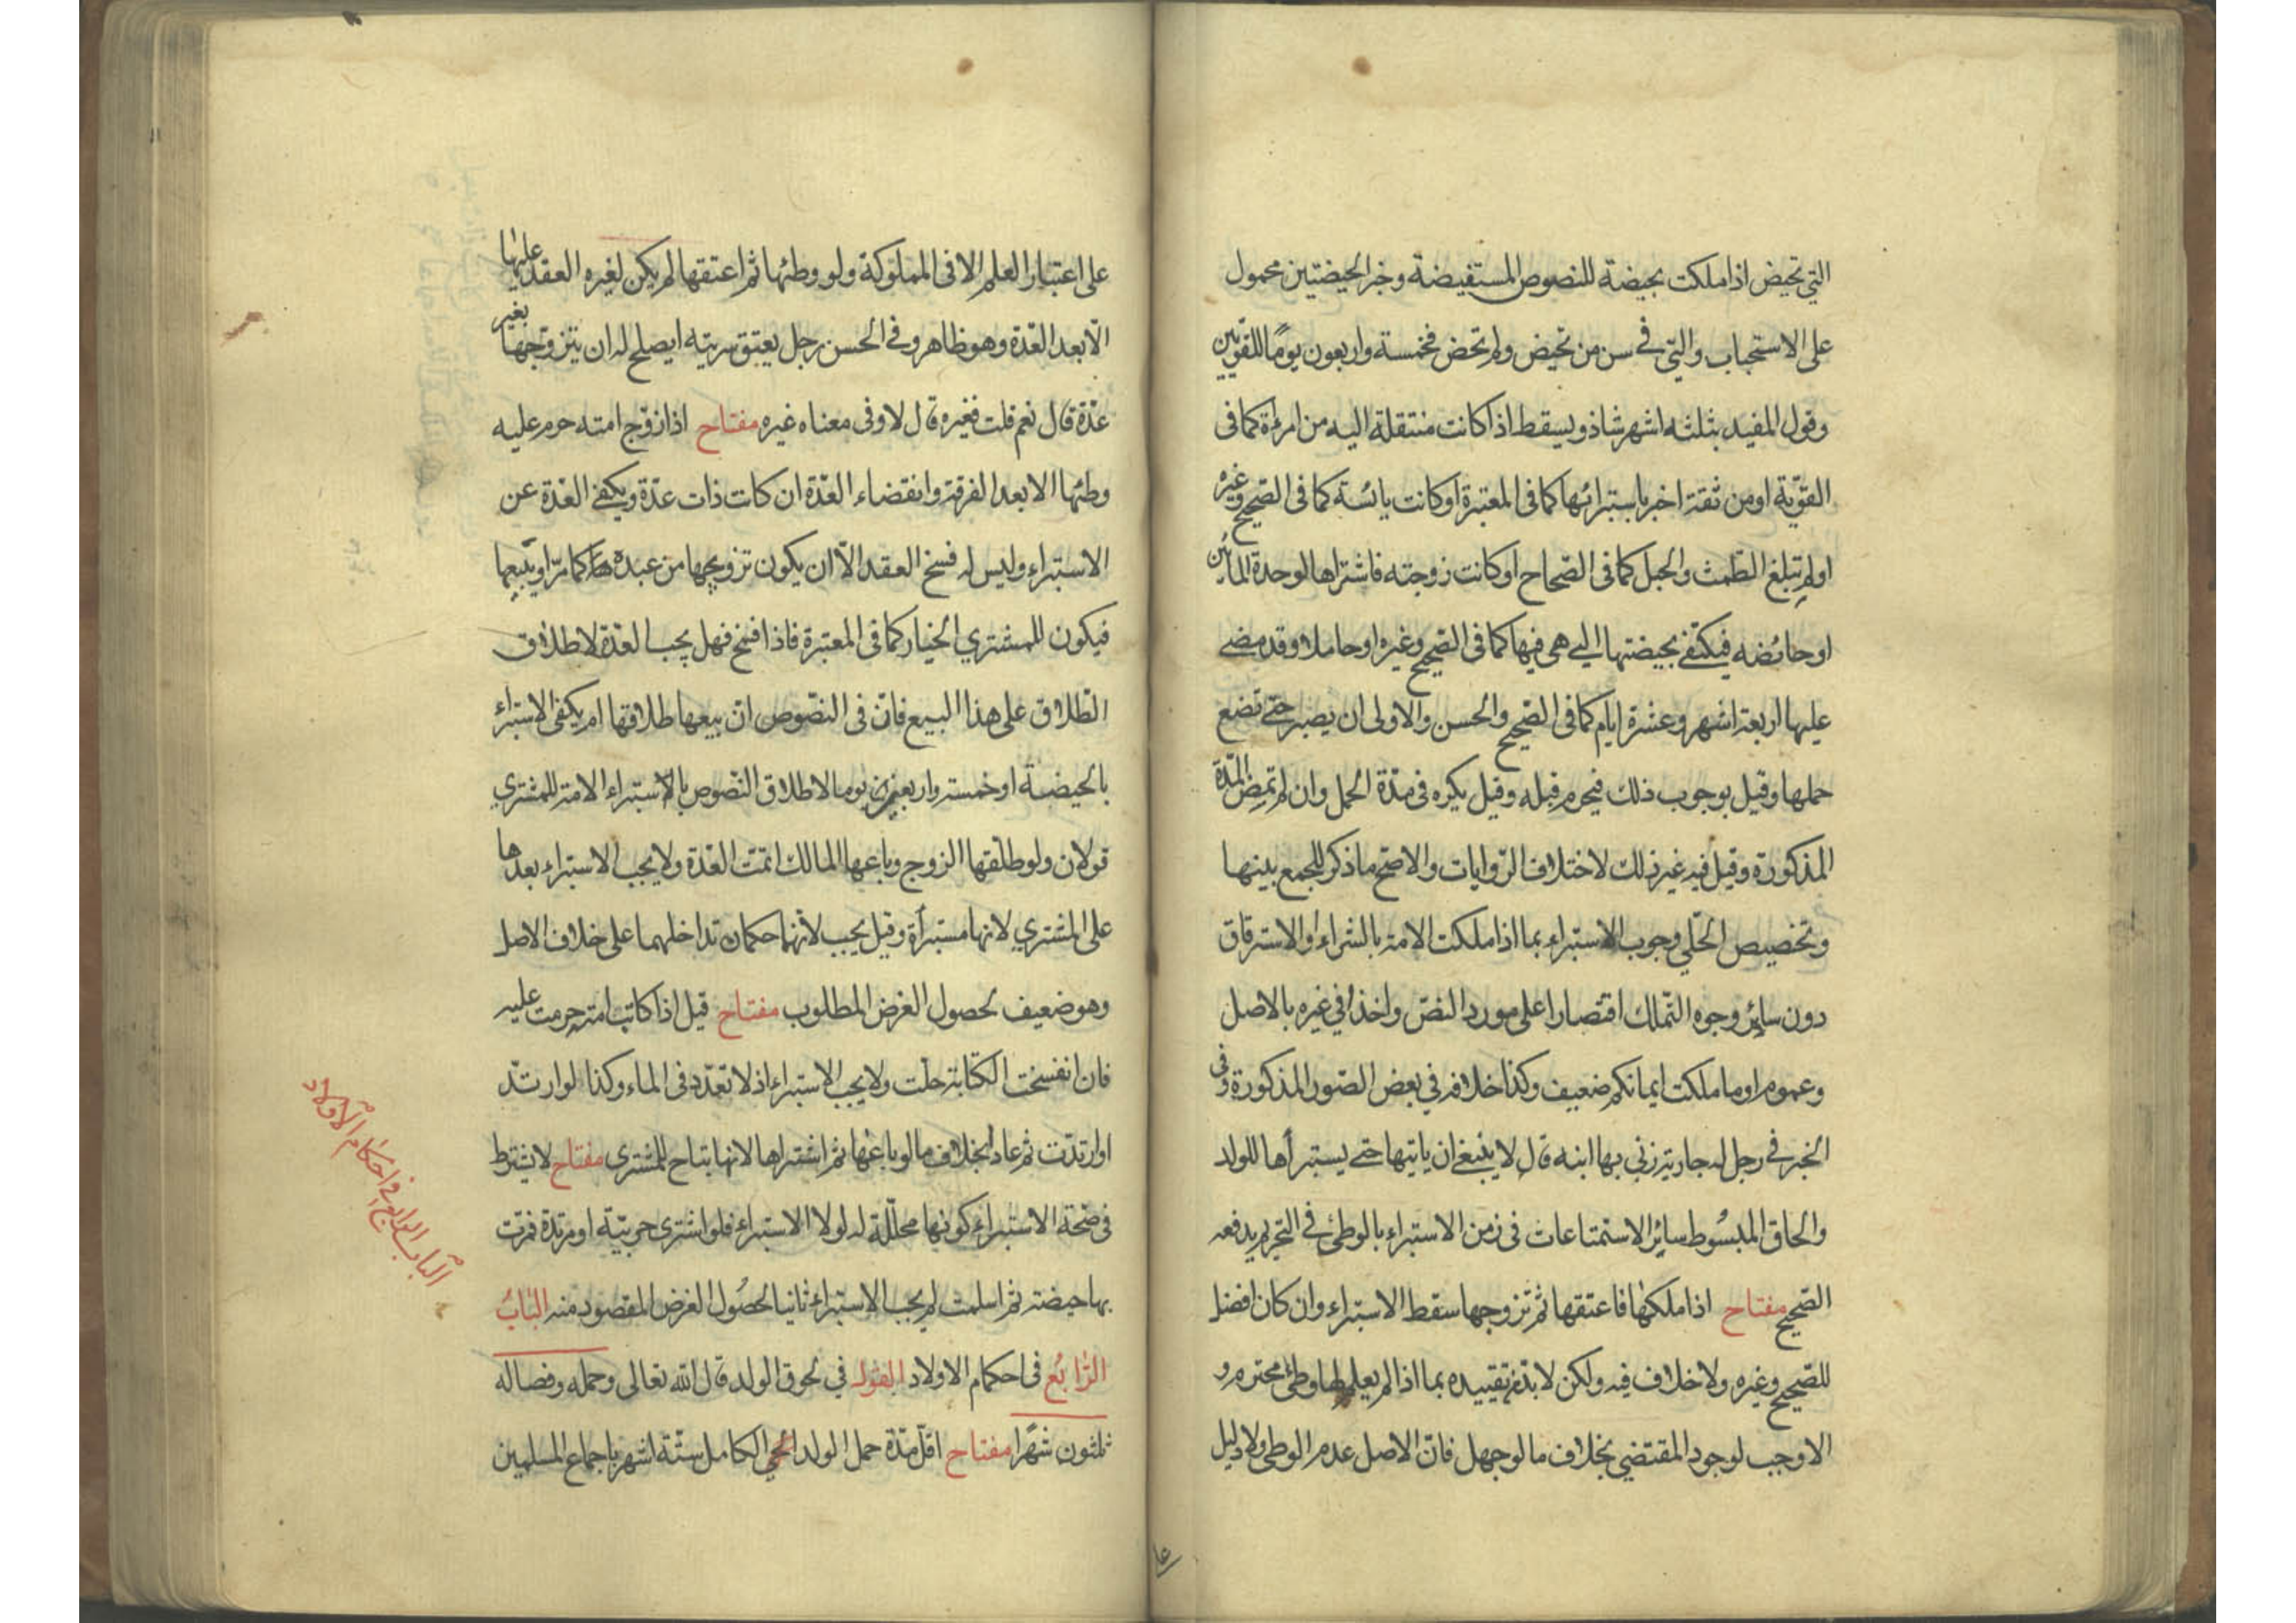 التي تحيض اذا ملكت بحيضة للنصوص المستفيضة وخبر الحيضتين محمول
على الاستحباب والتي في سن من تحيض ولم تحض فخمسة واربعون يومًا للقويّين
وقول المفيد بثلثه اشهر شاذ ويسقط اذا كانت منتقلة اليه من امرءة كما في
القويّة او من ثقة اخبر باستبرائها كما في المعتبرة او كانت يائسة كما في الصّحيح وغيره
او لم تبلغ الطمث والحبل كما في الصّحاح او كانت زوجته فاشتراها لوحدة المائين
او حائضه فيكتفي بحيضتها التي هي فيها كما في الصّحيح وغيره او حاملا وقد مضى
عليها اربعة اشهر وعشرة ايّام كما في الصّحيح والحسن والاولى ان يصبر حتى تضع
حملها وقيل بوجوب ذلك فيحرم قبله وقيل يكره في مدّة الحمل وان لم تمض المدّة
المذكورة وقيل فيه غير ذلك لاختلاف الرّوايات والاصحّ ما ذكر للجمع بينها
وتخصيص الحلّي وجوب الاستبراء بما اذا ملكت الامة بالشراء او الاسترقاق
دون سائر وجوه التّملك اقتصارا على مورد النصّ واخذا في غيره بالاصل
وعموم او ما ملكت ايمانكم ضعيف وكذا خلافه في بعض الصّور المذكورة وفي
الخبر في رجل له جارية زنى بها ابنه قال لا ينبغي ان ياتيها حتى يستبرأها للولد
والحاق المبسُوط سائر الاستمتاعات في زمن الاستبراء بالوطئ في التحريم يدفعه
الصّحيح مفتاح اذا ملكها فاعتقها ثم تزوجها سقط الاستبراء وان كان افضل
للصّحيح وغيره ولا خلاف فيه ولكن لا بدّ من تقييده بما اذا لم يعلم لها وطئ محترم و
الا وجب لوجود المقتضي بخلاف ما لو جهل فانّ الاصل عدم الوطى ولا دليل
على اعتبار العلم الا في المملوكة ولو وطئها ثم اعتقها لم يكن لغيره العقد عليها
الّا بعد العّدة وهو ظاهر وفي الحسن رجل يعتق سريته ايصلح له ان يتزوّجها بغير
عدّة قال نعم قلت فغيره قال لا وفي معناه غيره مفتاح اذا زوّج امته حرم عليه
وطئها الا بعد الفرقة وانقضاء العّدة ان كانت ذات عدّة ويكفي العّدة عن
الاستبراء وليس له فسخ العقد الّا ان يكون تزويجها من عبده كما مرّ او يبيعها
فيكون للمشتري الخيار كما في المعتبرة فاذا فسخ فهل يجب العدّة لاطلاق
الطّلاق على هذا البيع فانّ في النصّوص ان بيعها طلاقها ام يكفي الاستبراء
بالحيضة او خمسة واربعين يوما لاطلاق النّصوص بالاستبراء الامة للمشتري
قولان ولو طلّقها الزوج وباعها المالك اتمّت العّدة ولا يجب الاستبراء بعدها
على المشتري لانها مستبرأة وقيل يجب لانّهما حكمان تداخلهما على خلاف الاصل
وهو ضعيف لحصول الغرض المطلوب مفتاح قيل اذا كاتب امته حرمت عليه
فان انفسخت الكتابة حلّت ولا يجب الاستبراء اذ لا تعدّد في الماء وكذا لو ارتدّ
او ارتدّت ثم عاد بخلاف ما لو باعها ثم اشتراها لانها تباح للمشترى مفتاح لا يشترط
في صّحة الاستبراء كونها محلّلة له لولا الاستبراء فلو اشترى حربيّة او مرتدة فمرّت
بها حيضة ثم اسلمت لم يجب الاستبراء ثانيا لحصُول الغرض المقصود منه البابُ
الرّابعُ في احكام الاولاد القول في لحوق الولد قال اللّه تعالى وحمله وفصاله
ثلثون شهرًا مفتاح اقلّ مدّة حمل الولد الحيّ الكامل ستّة اشهر باجماع المسلمين
الباب الرابع في احكام الاولاد